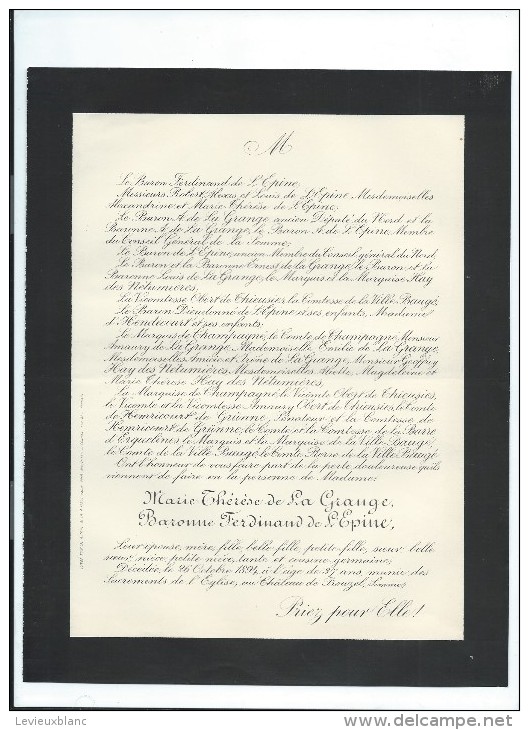 M
Le Baron Ferdinand de L'Epine,
Messieurs Robert, Alexis et Louis de L'Epine, Mesdemoiselles
Alexandrine et Marie-Thérèse de L'Epine,
Le Baron A. de La Grange, ancien Député du Nord et la
Baronne A. de La Grange, le Baron A. de L'Epine, Membre
du Conseil Général de la Somme,
Le Baron de L'Epine, ancien Membre du Conseil général du Nord,
Le Baron et la Baronne Ernest de La Grange, le Baron et la
Baronne Louis de La Grange, le Marquis et la Marquise Hay
des Nétumières,
La Vicomtesse Obert de Thieusies, la Comtesse de la Ville-Baugé,
Le Baron Dieudonné de L'Epine et ses enfants, Madame
d'Hendecourt et ses enfants,
Le Marquis de Champagné, le Comte de Champagné, Monsieur
Amaury de La Grange, Mademoiselle Emilie de La Grange,
Mesdemoiselles et Irène de La Grange, Monsieur Geoffroy
Hay des Nétumières, Mesdemoiselles Magdeleine et
Marie-Thérèse Hay des Nétumières,
La Marquise de Champagné, le Vicomte Obert de Thieusies,
le Vicomte et la Vicomtesse Amaury Obert de Thieusies, le Comte
de Hemricourt de Grunne, Sénateur et la Comtesse de
Hemricourt de Grunne, le Comte et la Comtesse de la Barre
d'Erquelines, le Marquis et la Marquise de la Ville-Baugé,
le Comte de la Ville-Baugé, le Comte Pierre de la Ville-Baugé
Ont l'honneur de vous faire part de la perte douloureuse qu'ils
viennent de faire en la personne de Madame
Marie-Thérèse de La Grange,
Baronne Ferdinand de L'Epine,
Leur épouse, mère, fille, belle-fille, petite-fille, sœur, belle-
sœur, nièce, petite-nièce, tante et cousine germaine,
Décédée, le 26 Octobre 1894, à l'âge de 27 ans, munie des
Sacrements de l'Eglise, au Château de Prouzel, (Somme)
Priez pour Elle!
Levieuxblanc
www.delcampe.net